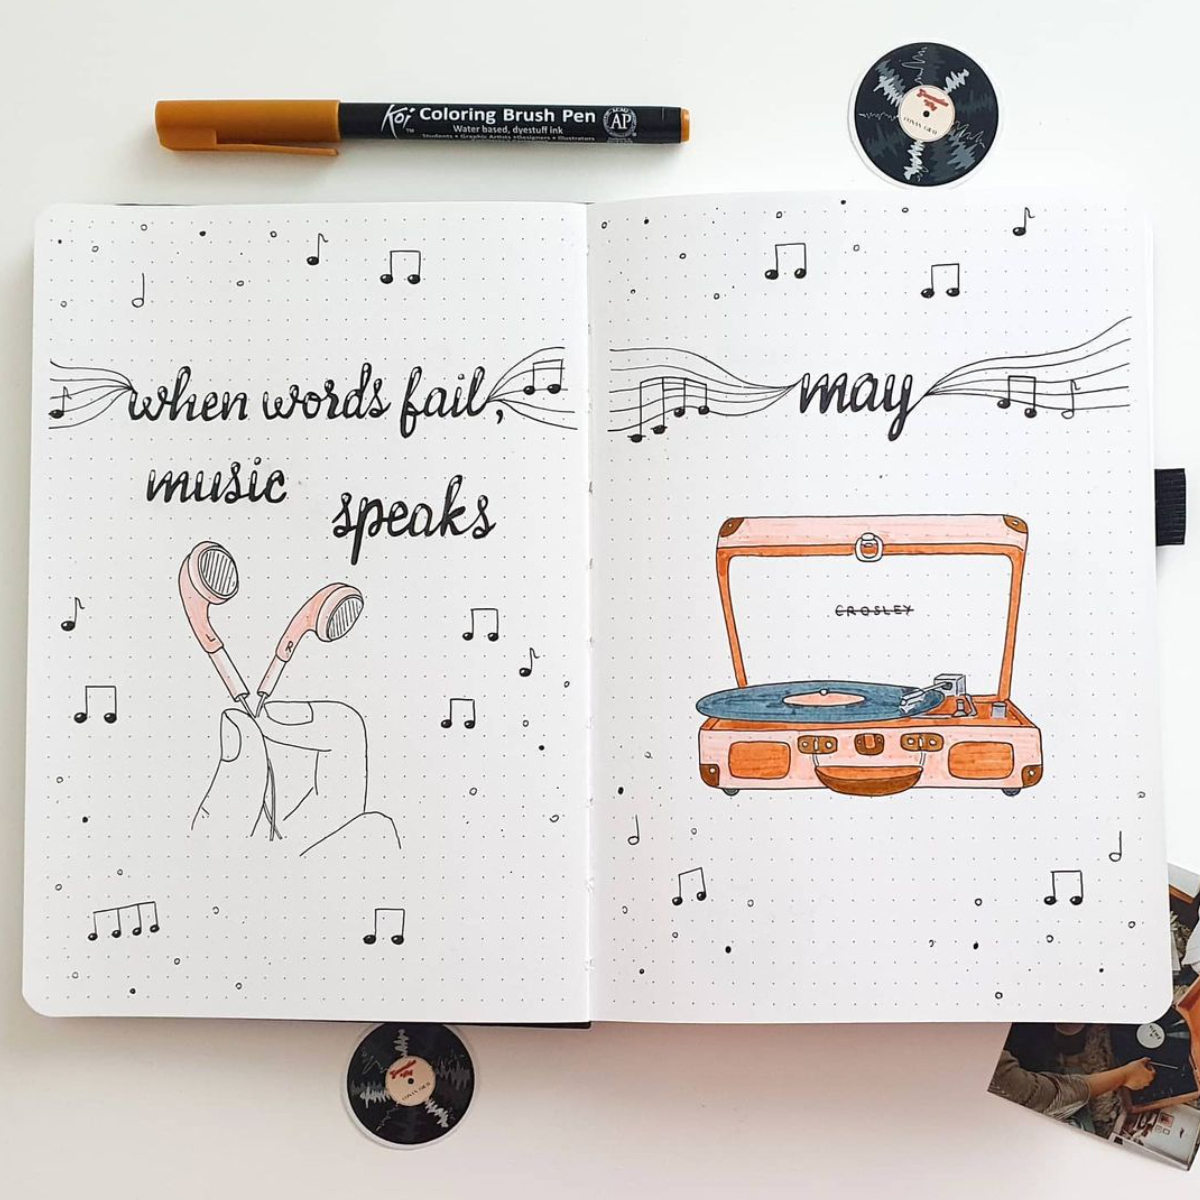 Koi™ Coloring Brush Pen
Water based, dyestuff ink
Students • Graphic Artists • Designers • Illustrators
AP
when words fail,
music
speaks
L
R
may
CROSLEY
CONAN GRAY
CONAN GRAY